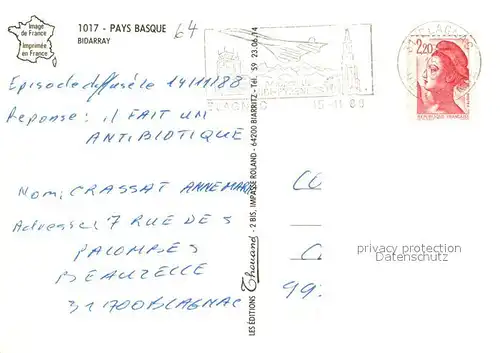 Image
de France
Imprimée
en France
1017 - PAYS BASQUE
BIDARRAY
64
Episode diffusée le 14/11/88
Réponse : il FAIT UN
ANTIBIOTIQUE
Nom: CRASSAT ANNEMARIE
Adresse: 7 RUE DES
PALOMBES
BEAUZELLE
31700 BLAGNAC
LES ÉDITIONS Thouand - 2 BIS, IMPASSE ROLAND - 64200 BIARRITZ - Tél. 59 23.06.14
BLAGNAC
15-11 88
2,20
REPUBLIQUE FRANÇAISE
CE
C
99
privacy protection
Datenschutz